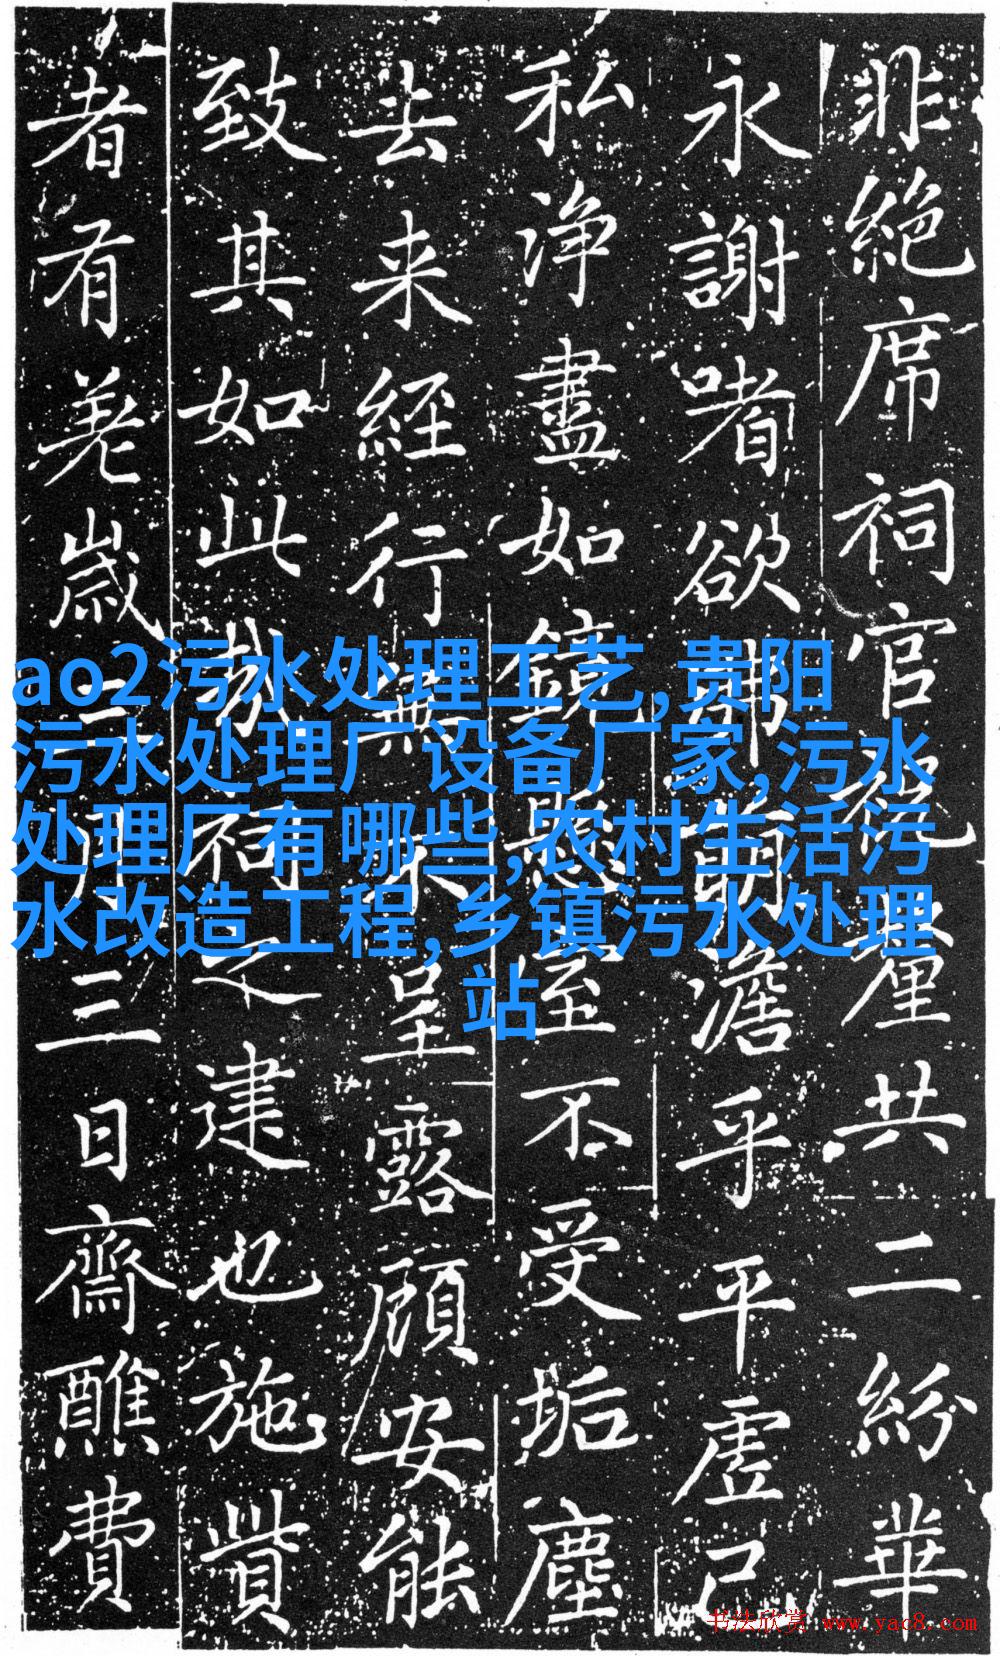 非絶席祠官祝釐共二紛華
永謝嗜欲那萌澹乎平虛己
私淨盡如鏡不受垢塵
去来經行無不呈露顧安能
致其如此哉祠之建也施貲
者有羗歲三月三日齋醮費
ao2污水处理工艺,贵阳
污水处理厂设备厂家,污水
处理厂有哪些,农村生活污
水改造工程,乡镇污水处理
站
书法欣赏 www.yac8.com